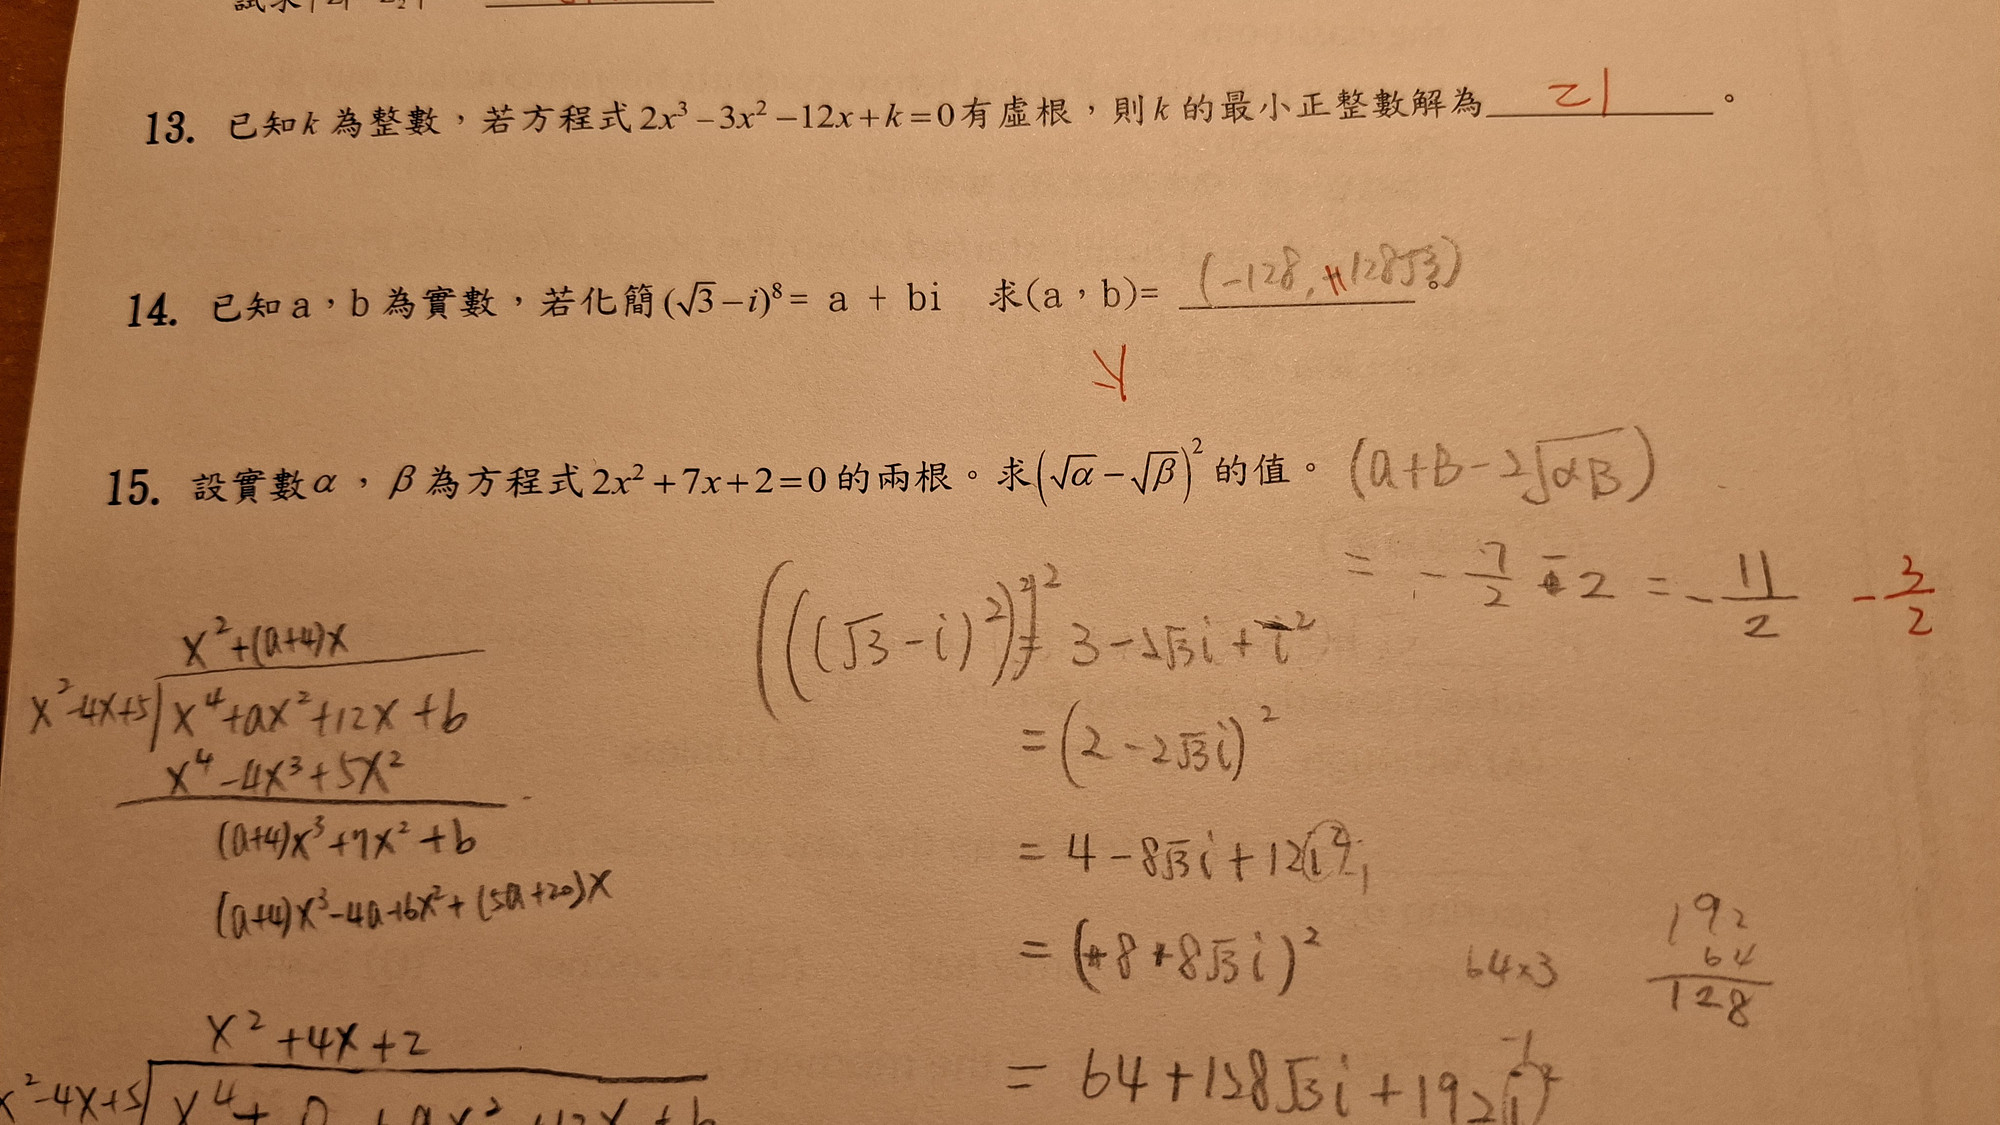 試求
13. 已知k為整數，若方程式2x³−3x²−12x+k=0有虛根，則k的最小正整數解為 21 。
14. 已知a，b為實數，若化簡(√3−i)⁸= a + bi 求(a，b)= (-128, +128√3) 。
15. 設實數α，β為方程式2x²+7x+2=0的兩根。求(√α−√β)²的值。 (α+β-2√αβ)
= -7/2 - 2 = -11/2 -3/2
(((√3-i)²)²)² = 3-2√3i+i²
= (2-2√3i)²
= 4-8√3i+12i² -1
= (+8+8√3i)² 64×3
192
64
128
= 64+128√3i+192i² -1
x²+(a+4)x
x²-4x+5 x⁴+ax²+12x+b
x⁴-4x³+5x²
(a+4)x³+7x²+b
(a+4)x³-4a+16x²+(5a+20)x
x²+4x+2
x²-4x+5 x⁴+0+ax²+12x+b